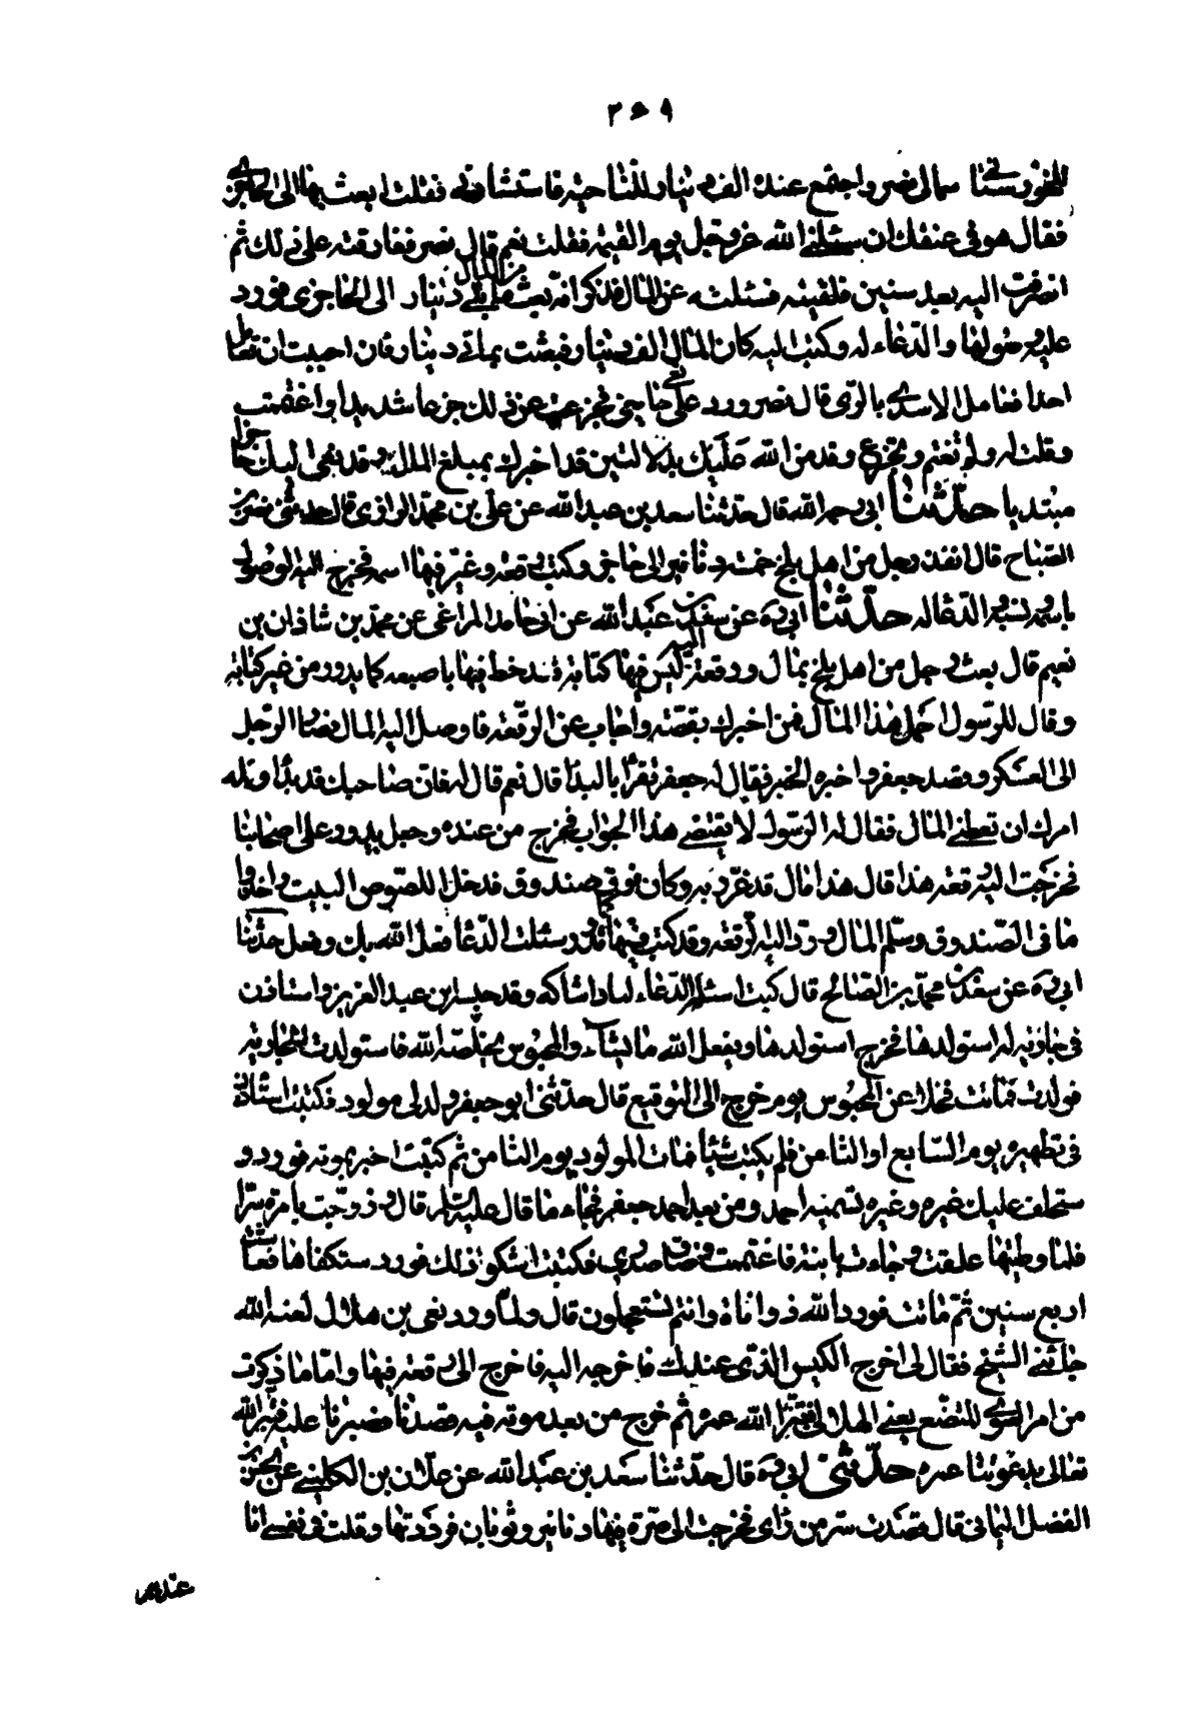 ٢٦٩
للخوزستانی سمالی نصر واجتمع عنده الف دینار للناحیة فاستشارنی فقلت ابعث بها الی الحاجزی
فقال هو فی عنقك ان سئلنی الله عزوجل یوم القیمة فقلت نعم قال نصر ففارقته علی ذلك ثم
انصرفت الیه بعد سنتین فلقیته فسئلته عن المال فذكر انه بعث من المال بمأتی دینار الی الحاجزی فورد
علیه وصولها والدعاء له وكتب الیه كان المال الف دینار فبعثت بمأتی دینار فان احببت ان تعامل
احدا فعامل الاسدی بالری قال نصر وورد علی نعی حاجز فجزعت من ذلك جزعا شدیدا واغتممت
وقلت له ولم تغتم وتجزع وقد من الله علیك بدلالتین قد اخبرك بمبلغ المال وقد نعی الیك حاجزا
مبتدیا حدثنا ابی رحمه الله قال حدثنا سعد بن عبدالله عن علی بن محمد الرازی قال حدثنی نصر بن
الصباح قال انفذ رجل من اهل بلخ خمسة دنانیر الی حاجز وكتب رقعة وغیر فیها اسمه فخرج الیه الوصول
باسمه ونسبه والدعاء له حدثنا ابی ره عن سعد بن عبدالله عن ابی حامد المراغی عن محمد بن شاذان بن
نعیم قال بعث رجل من اهل بلخ بمال ورقعة لیس فیها كتابة قد خط فیها باصبعه كما یدور من غیر كتابة
وقال للرسول احمل هذا المال فمن اخبرك بقصته واجاب عن الرقعة فاوصل الیه المال فصار الرجل
الی العسكر وقصد جعفر واخبره الخبر فقال له جعفر تقر بالبدا قال نعم قال له فان صاحبك قد بدا له وقد
امرك ان تعطینی المال فقال له الرسول لا یقنعنی هذا الجواب فخرج من عنده وجعل یدور علی اصحابنا
فخرجت الیه رقعة هذا قال هذا مال قد غرر به وكان فوق صندوق فدخل اللصوص البیت واخذوا
ما فی الصندوق وسلم المال وردت الیه الرقعة وقد كتب فیها كما تدور وسئلت الدعا فعل الله بك وفعل حدثنا
ابی ره عن سعد بن محمد بن الصالح قال كتبت اسئله الدعاء لباداشاكه وقد حبسه ابن عبدالعزیز واستاذن
فی جاریة له استولدها فخرج استولدها ویفعل الله ما یشاء والمحبوس یخلصه الله فاستولدت الجاریة
فولدت فماتت فخلا عن المحبوس یوم خرج الی التوقیع قال حدثنی ابو جعفر ولد لی مولود فكتبت استأذنه
فی تطهیره یوم السابع او الثامن فلم یكتب شیئا فمات المولود یوم الثامن ثم كتبت اخبره بموته فورد و
ستخلف علیك غیره وغیره تسمیه احمد ومن بعد احمد جعفر فجاء ما قال علیه السلام قال وتزوجت بامرأة سرا
فلما وطئها علقت وجاءت بابنة فاغتممت وضاق صدری فكتبت اشكو ذلك فورد ستكفاها فعاشت
اربع سنین ثم ماتت فورد الله ذو اناة وانتم تستعجلون قال ولما ورد نعی بن هلال لعنه الله
جائنی الشیخ فقال لی اخرج الكیس الذی عندك فاخرجه الیه فاخرج الی رقعة فیها واما ما ذكرت
من امر الصوفی المتصنع یعنی الهلالی فبتر الله عمره ثم خرج من بعد موته فیه قصدنا فصبرنا علیه فبتر الله
تعالی بدعوتنا عمره حدثنی ابی ره قال حدثنا سعد بن عبدالله عن علان بن الكلینی عن الحسن بن
الفضل الیمانی قال قصدت سر من رای فخرجت الی صرة فیها دنانیر وثوبان فرددتها وقلت فی نفسی انا
عندهم